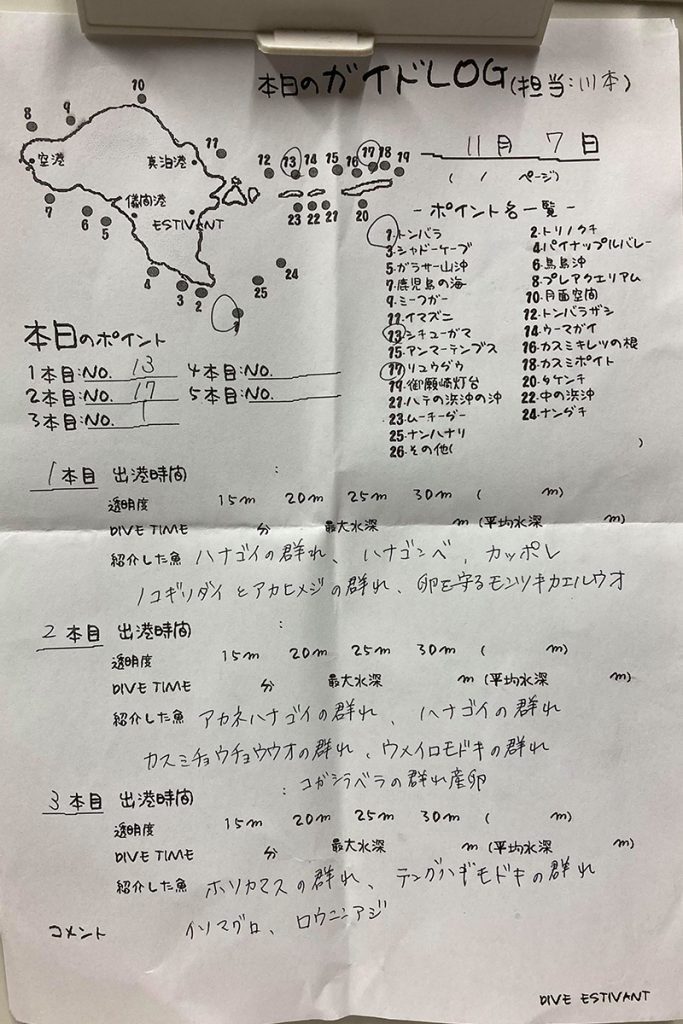 本日のガイドLOG(担当:川本)
11月 7日
( / ページ)
10
8 9
空港 真泊港 11
12 13 14 15 16 17 18 19
儀間港
ESTIVANT
7 6 5
23 22 21 20
4 3 2 1 25 24
- ポイント名一覧 -
1.トンバラ 2.トリノクチ
3.シャドーケーブ 4.パイナップルバレー
5.ガラサー山沖 6.鳥島沖
7.鹿児島の海 8.プレアクエリアム
9.ミーフガー 10.月面空間
11.イマズニ 12.トンバラザシ
13.シチューガマ 14.ウーマガイ
15.アンマーテンプス 16.カスミキレツの根
17.リュウダウ 18.カスミポイト
19.御願崎灯台 20.タケンチ
21.ハテの浜沖の沖 22.中の浜沖
23.ムーチーダー 24.ナンダチ
25.ナンハナリ
26.その他( )
本日のポイント
1本目:NO. 13 4本目:NO.
2本目:NO. 17 5本目:NO.
3本目:NO. 1
1本目 出港時間 :
透明度 15m 20m 25m 30m ( m)
DIVE TIME 分 最大水深 m (平均水深 m)
紹介した魚 ハナゴイの群れ、ハナゴンベ、カッポレ
ノコギリダイとアカヒメジの群れ、卵を守るモンツキカエルウオ
2本目 出港時間 :
透明度 15m 20m 25m 30m ( m)
DIVE TIME 分 最大水深 m (平均水深 m)
紹介した魚 アカネハナゴイの群れ、ハナゴイの群れ
カスミチョウチョウウオの群れ、ウメイロモドキの群れ
コガシラベラの群れ産卵
3本目 出港時間 :
透明度 15m 20m 25m 30m ( m)
DIVE TIME 分 最大水深 m (平均水深 m)
紹介した魚 ホソカマスの群れ、テングハギモドキの群れ
イソマグロ、ロウニンアジ
コメント
DIVE ESTIVANT